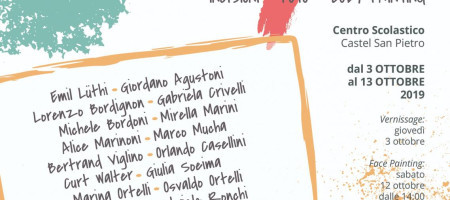 Centro Scolastico
Castel San Pietro
dal 3 OTTOBRE
al 13 OTTOBRE
2019
Vernissage:
giovedì
3 ottobre
Face Painting:
sabato
12 ottobre
dalle 14:00
Emil Lüthi - Giordano Agustoni
Lorenzo Bordignon - Gabriela Crivelli
Michele Bordoni - Mirella Marini
Alice Marinoni - Marco Mucha
Bertrand Viglino - Orlando Casellini
Curt Walter - Giulia Soeima
Marina Ortelli - Osvaldo Ortelli
Ronchi